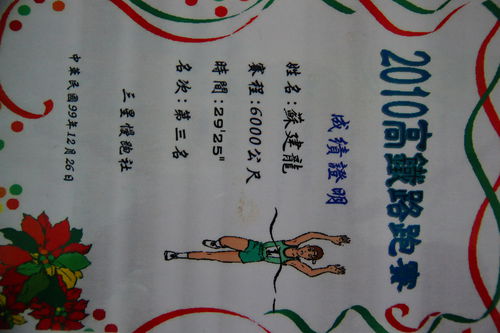 2010高鐵路跑賽
成績證明
姓名:蘇建龍
賽程:6000公尺
時間:29'25"
名次:第三名
三星慢跑社
中華民國99年12月26日